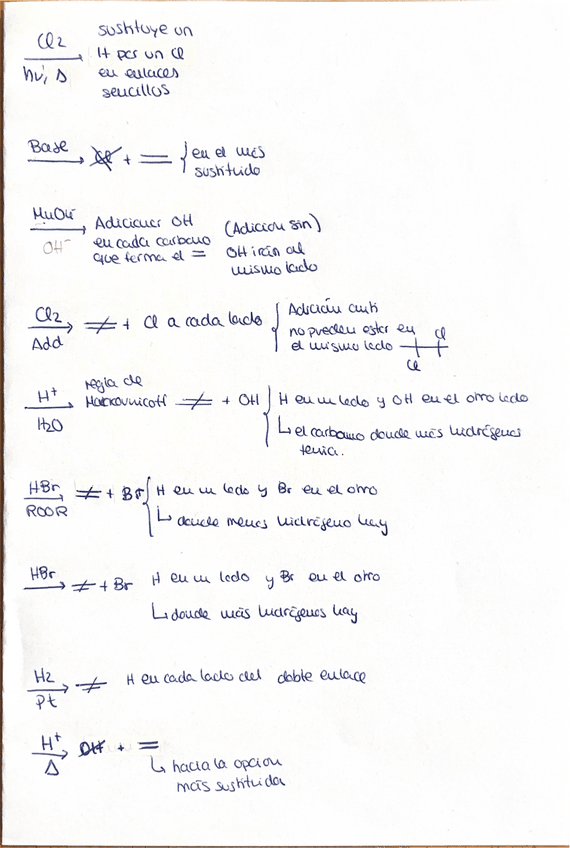 Cl2 sustituye un
hν, Δ H por un Cl
en enlaces
sencillos
Base → C̶l̶ + = { en el más
sustituido
MnO4⁻ Adicionar OH (Adicion sin)
OH⁻ en cada carbono OH irán al
que forma el = mismo lado
Cl2 → ≠ + Cl a cada lado { Adición anti
Add no pueden estar en Cl
el mismo lado
Cl
H⁺ regla de
H2O Markovnicoff ≠ + OH { H en un lado y OH en el otro lado
↳ el carbono donde más hidrógenos
tenia.
HBr → ≠ + Br { H en un lado y Br en el otro
ROOR ↳ donde menos hidrógeno hay
HBr → ≠ + Br H en un lado y Br en el otro
↳ donde más hidrógenos hay
H2 → ≠ H en cada lado del doble enlace
Pt
H⁺ → O̶H̶ + =
Δ ↳ hacia la opcion
más sustituida